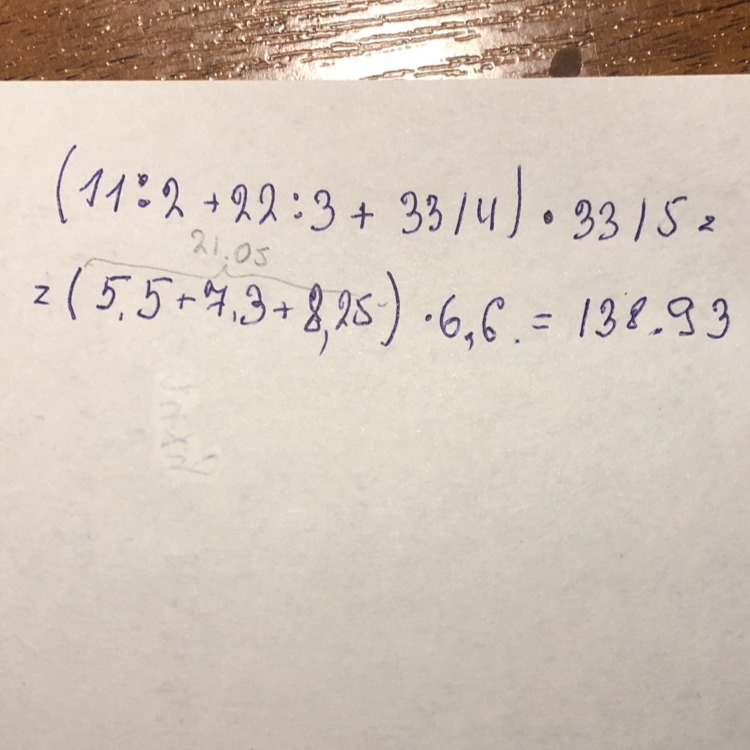 (11:2 + 22:3 + 33/4) • 33/5 =
21.05
= (5,5 + 7,3 + 8,25) • 6,6. = 138.93